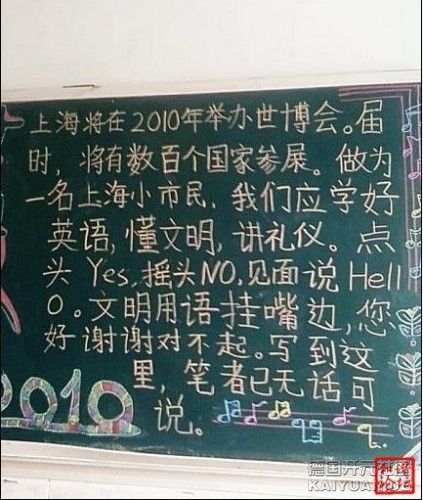 上海将在2010年举办世博会。届
时，将有数百个国家参展。做为
一名上海小市民，我们应学好
英语，懂文明，讲礼仪。点
头Yes，摇头NO，见面说Hell
O。文明用语挂嘴边，您
好谢谢对不起。写到这
里，笔者已无话可
说。
2010
德国开元
KAIYUAN